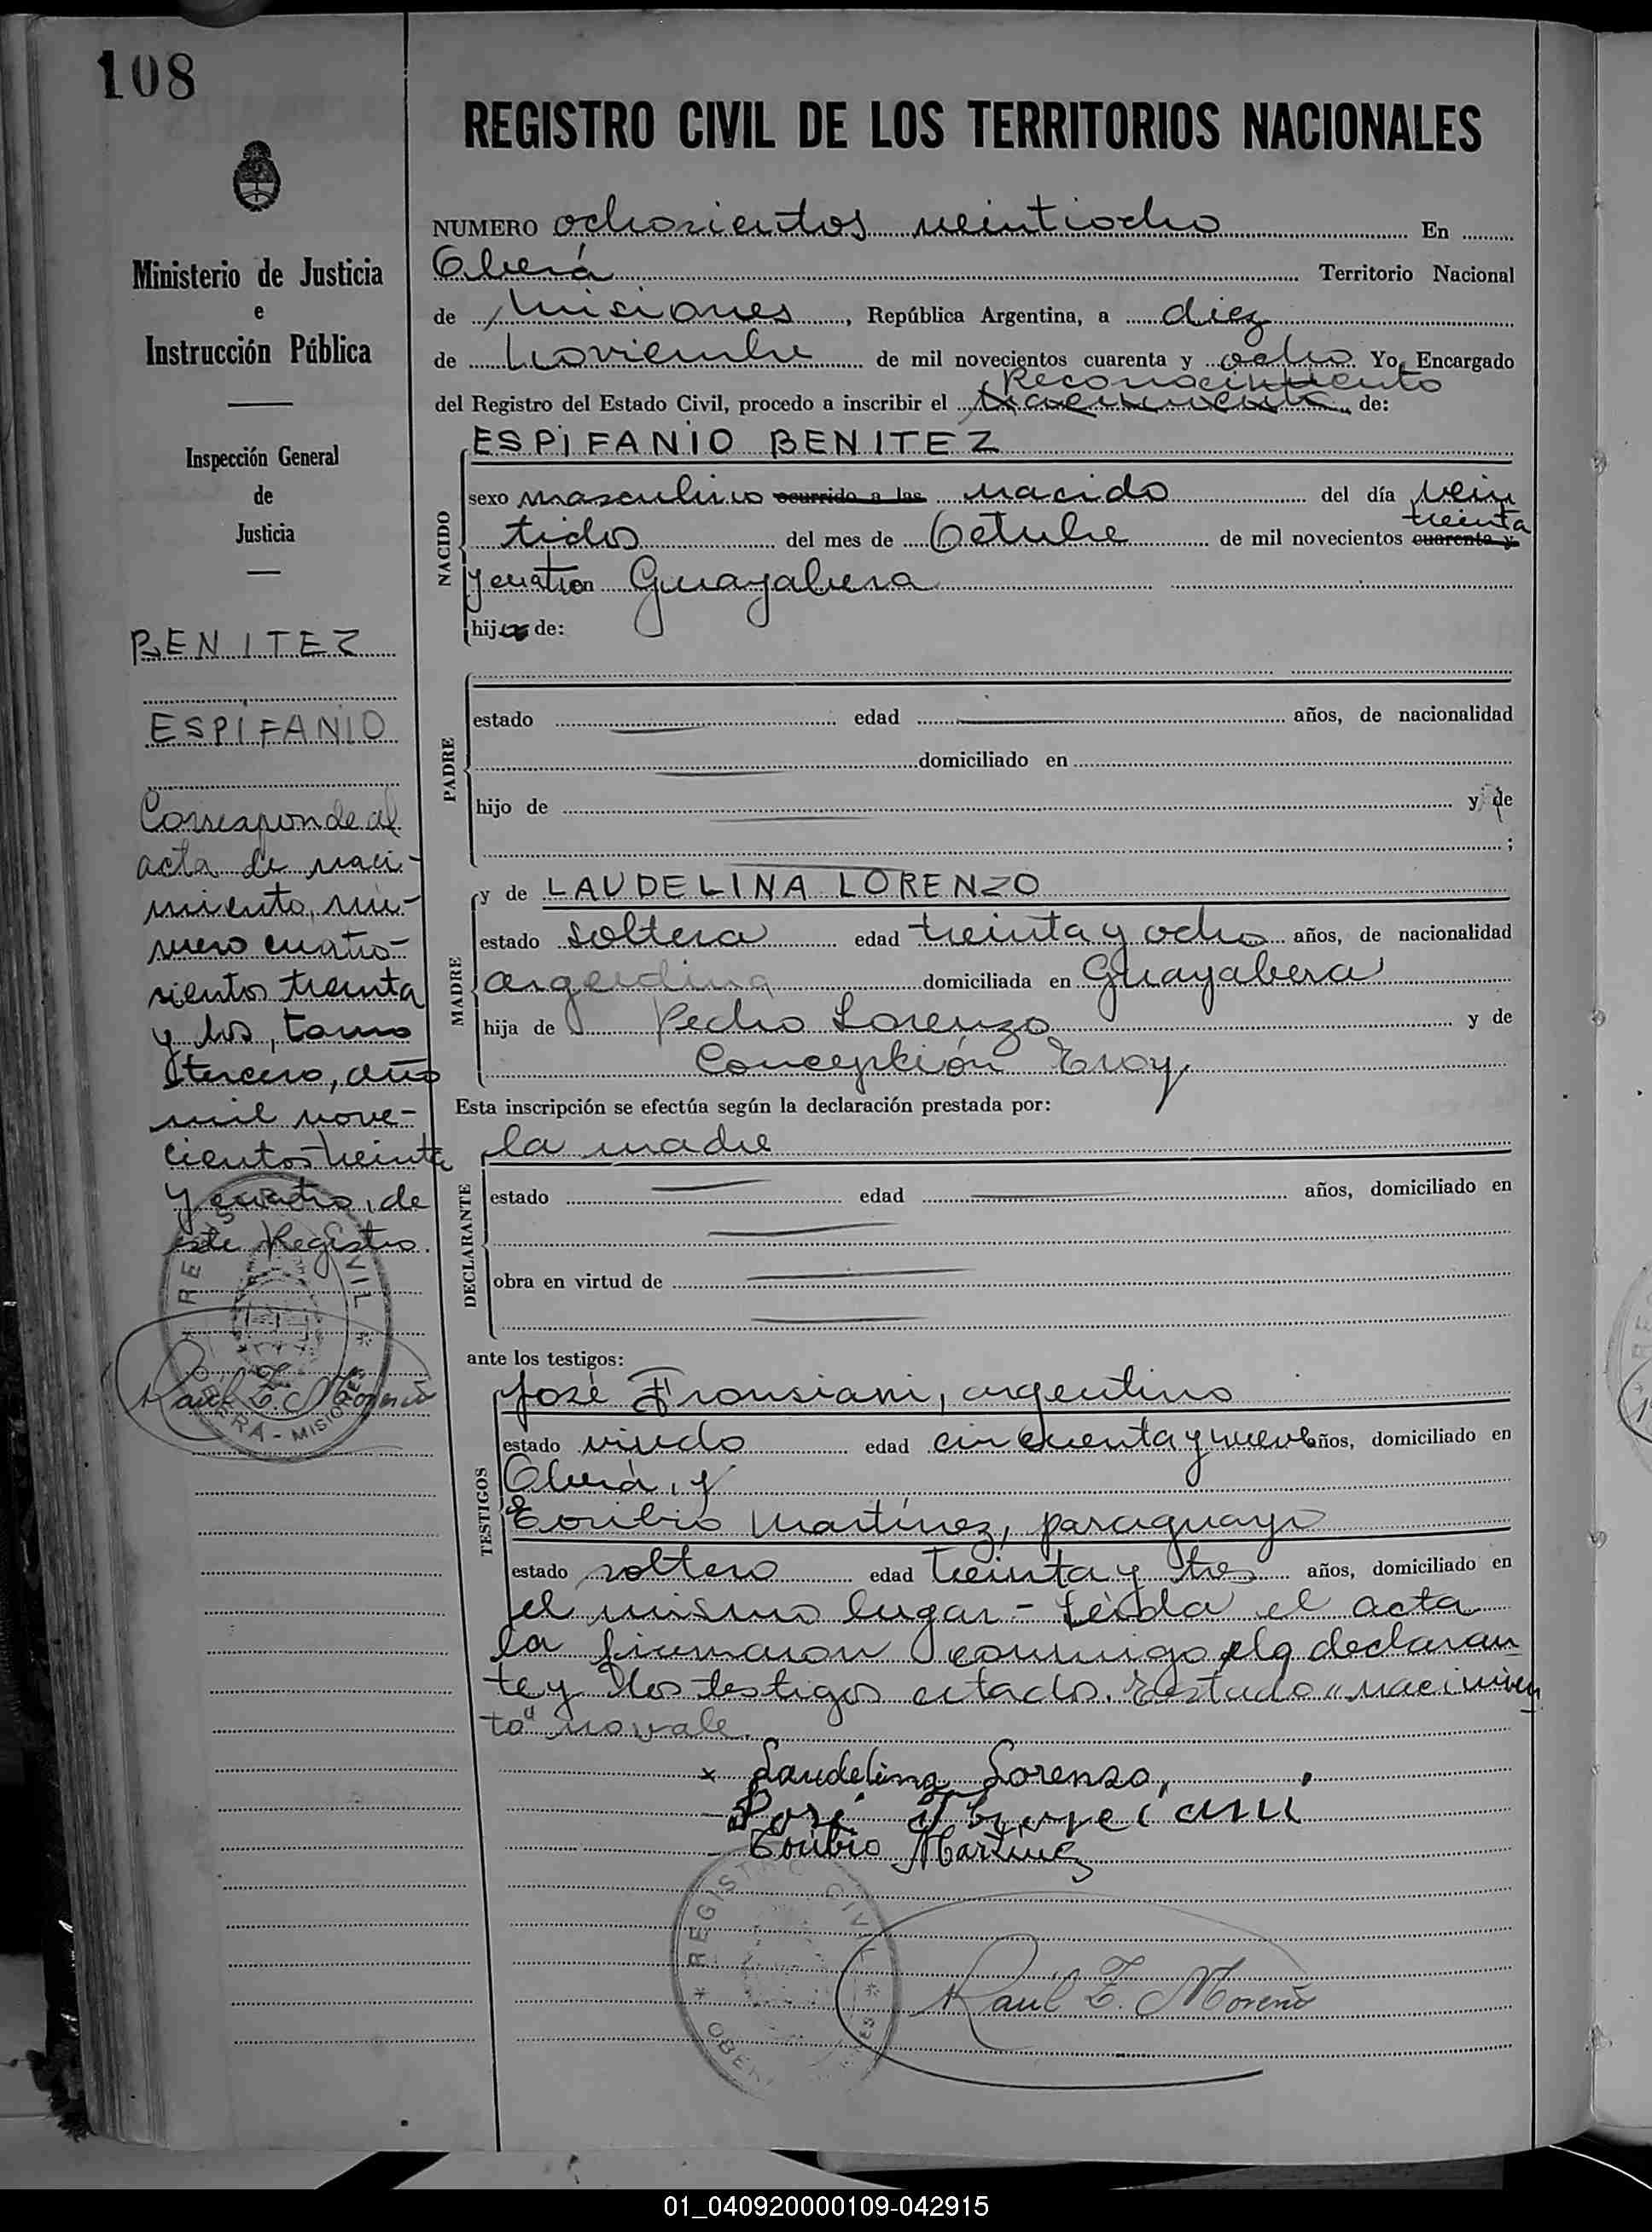 108
REGISTRO CIVIL DE LOS TERRITORIOS NACIONALES
Ministerio de Justicia
e
Instrucción Pública
Inspección General
de
Justicia
BENITEZ
ESPIFANIO
Corresponde al
acta de naci-
miento, nú-
mero cuatro-
sientos treinta
y dos, tomo
tercero, año
mil nove-
cientos treinta
y cuatro, de
este Registro.
REGISTRO CIVIL
OBERÁ - MISIONES
Raúl T. Moreno
NUMERO ochosientos veintiocho En
Oberá Territorio Nacional
de Misiones, República Argentina, a diez
de Noviembre de mil novecientos cuarenta y ocho Yo, Encargado
Reconocimiento
del Registro del Estado Civil, procedo a inscribir el nacimiento de:
NACIDO
ESPIFANIO BENITEZ
sexo masculino ocurrido a las nacido del día vein
treinta
tidos del mes de Octubre de mil novecientos cuarenta y
y cuatro Guayabera
hij de:
PADRE
estado edad años, de nacionalidad
domiciliado en
hijo de y de
;
MADRE
y de LAUDELINA LORENZO
estado soltera edad treinta y ocho años, de nacionalidad
argentina domiciliada en Guayabera
hija de Pedro Lorenzo y de
Concepción
Esta inscripción se efectúa según la declaración prestada por:
DECLARANTE
la madre
estado edad años, domiciliado en
obra en virtud de
ante los testigos:
TESTIGOS
José Fronsiani, argentino
estado viudo edad cincuenta y nueve años, domiciliado en
Oberá, y
Toribio Martínez, paraguayo
estado soltero edad treinta y tres años, domiciliado en
el mismo lugar - Leída el acta
la firmaron conmigo la declaran
te y los testigos citados. Testado "nacimien
to" no vale.
x Laudelina Lorenso,
José
Toribio Martinez
REGISTRO CIVIL
OBERÁ
Raúl T. Moreno
01_040920000109-042915